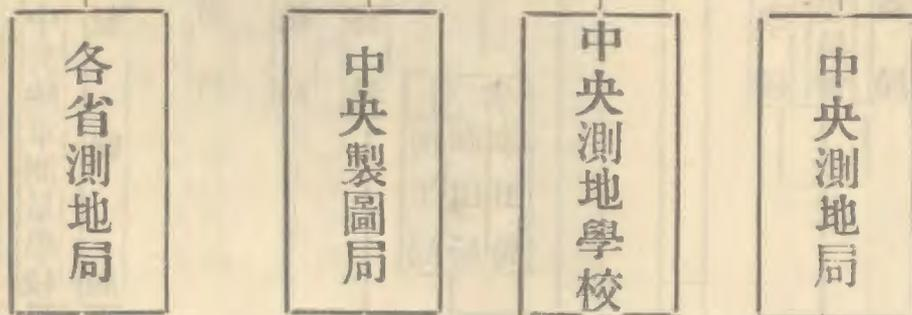 中央測地局
中央測地學校
中央製圖局
各省測地局